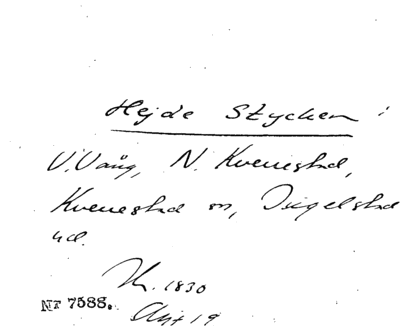 Hejde Stycken :
V. Vång, N. Kvenestad,
Kvenestad m, Digelstad
ud.
Th. 1830
Nr 7588. Akt 19